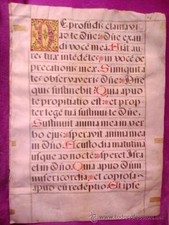 DE profundis clamavi
ad te Dñe: Dñe exau
di vocē meā. Fiāt au
res tuæ intēdētes: in vocē de
precationis meæ. Si iniquita
tes observaveris Dñe: Dñe
quis sustinebit? Quia apud
te propitiatio est: et propter
legem tuam sustinui te Dñe.
Sustinuit anima mea in ver
bo eius: speravit anima mea
in Dño. A custodia matutina
usque ad noctē: speret Isra
el in Dño. Quia apud Dñm
misericordia: et copiosa
apud eū redēptio. Et ipse